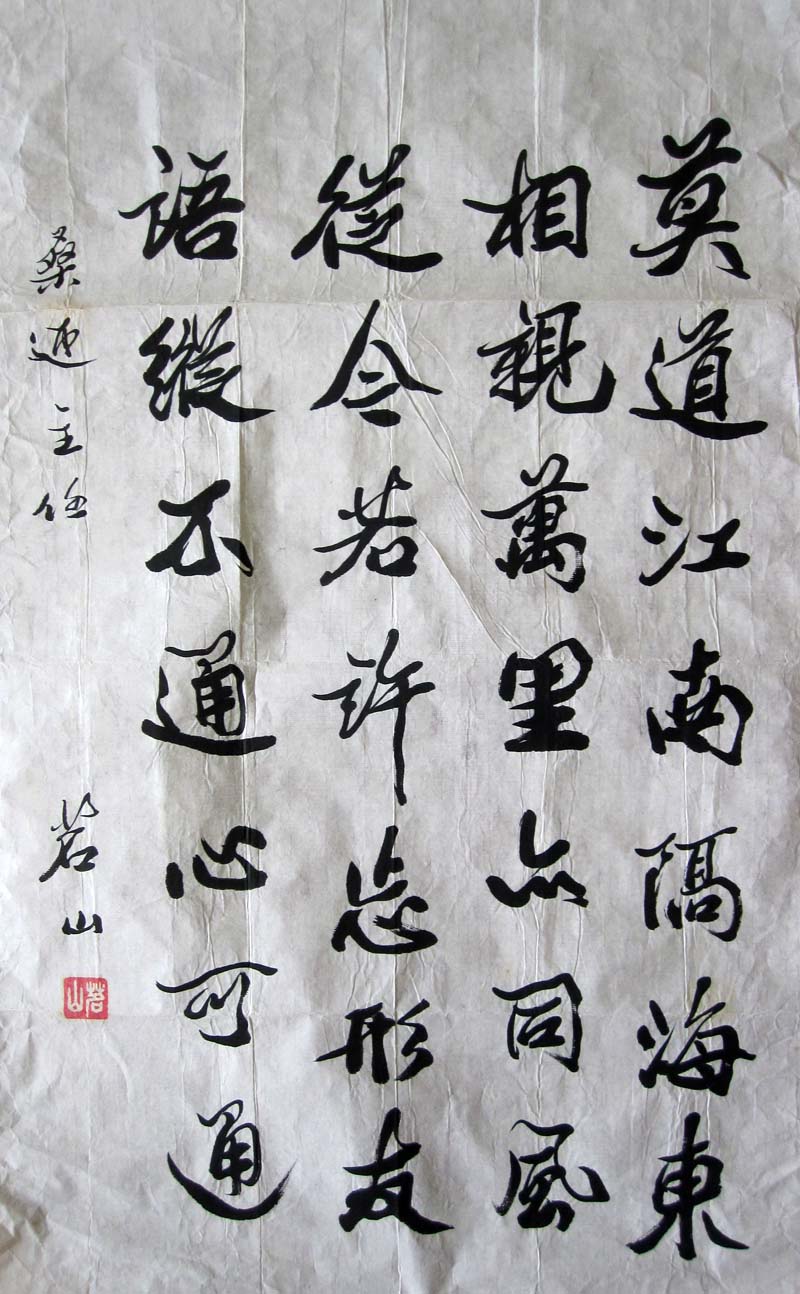 莫道江南隔海東
相親萬里亦同風
從今若許忘形友
語縱不通心可通
桑
主任
茗山
茗山